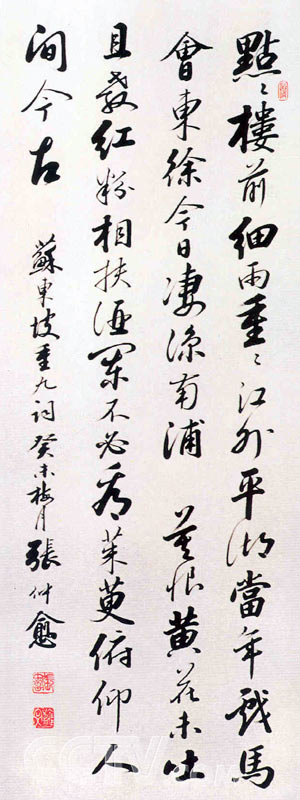 點〻樓前細雨重〻江外平湖當年戲馬
會東徐今日凄涼南浦 莫恨黄花未吐
且教紅粉相扶酒闌不必看茱萸俯仰人
間今古
蘇東坡重九詞癸未梅月張仲愈
CCTV